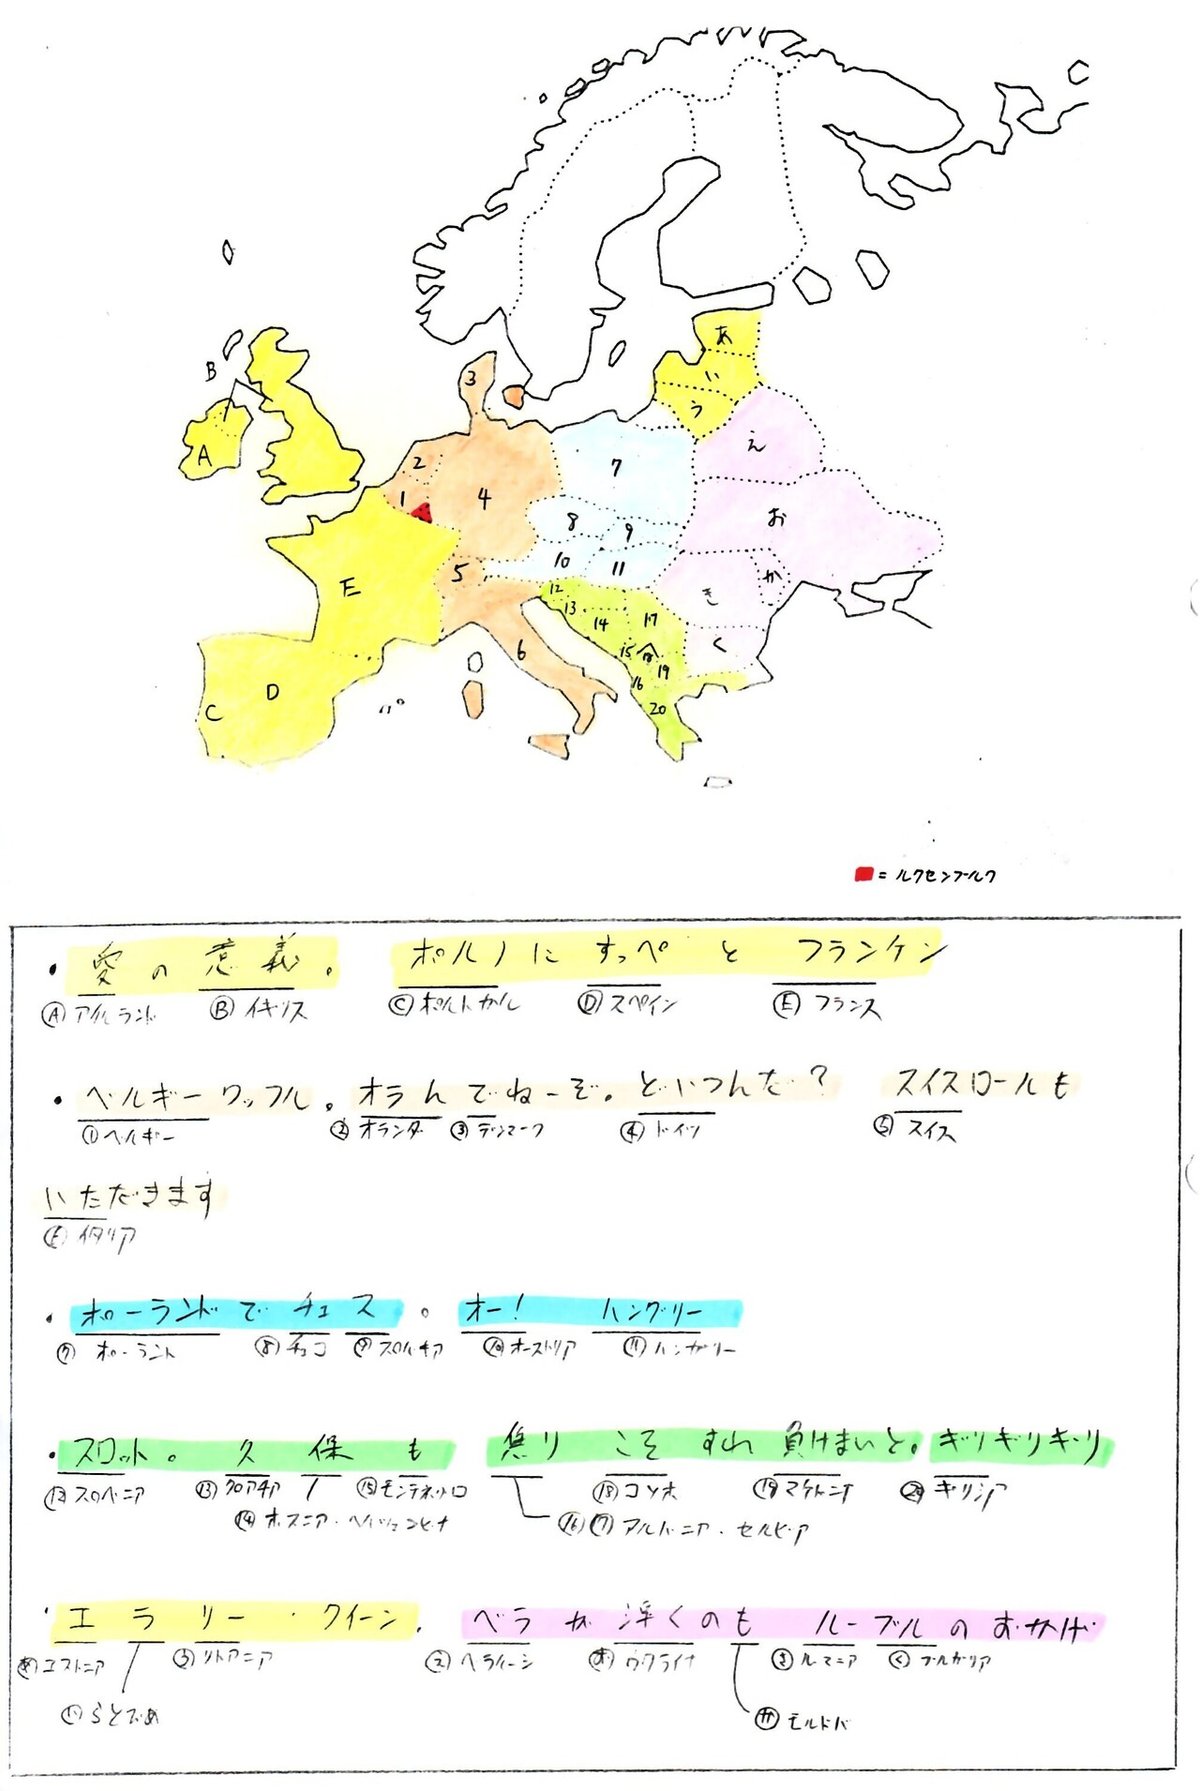 B
あ
い
う
A
3
2
1
4
7
え
お
8
9
10
11
5
E
12
13
14
17
き
か
く
6
15
18
16
19
20
D
C
= ルクセンブルク
・愛の意義。 ポルノに すっぺ と フランケン
Ⓐアイルランド Ⓑイギリス Ⓒポルトガル Ⓓスペイン Ⓔフランス
・ベルギーワッフル。オラんでねーぞ。どいつんだ? スイスロールも
①ベルギー ②オランダ ③デンマーク ④ドイツ ⑤スイス
いただきます
イタリア
・ポーランドで チェス 。 オー! ハングリー
⑦ポーランド ⑧チェコ ⑨スロバキア ⑩オーストリア ⑪ハンガリー
・スロット。久保も 焦り こそ すれ 負けまいと。ギリギリギリ
⑫スロベニア ⑬クロアチア ⑮モンテネグロ ⑱コソボ ⑲マケドニア ⑳ギリシア
⑭ボスニア・ヘルツェゴビナ ⑯⑰アルバニア・セルビア
・エラリー・クイーン。 ベラが浮くのも ルーブルのおかげ
あエストニア うリトアニア えベラルーシ おウクライナ きルーマニア くブルガリア
いらとびあ
かモルドバ